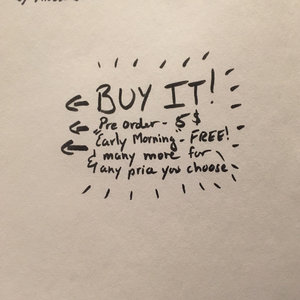 BUY IT!
Pre order - 5 $
"Early Morning" - FREE!
& many more for
any pria you choose